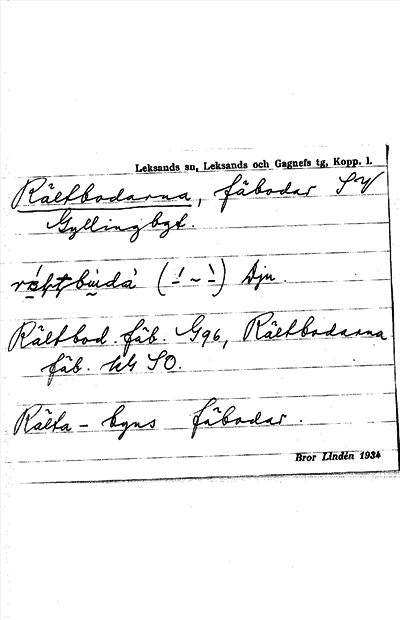 Leksands sn, Leksands och Gagnefs tg, Kopp. l.
Rältbodarna, fäbodar SV
Gyllingbgt.
(-́ ~ -̀) Dju.
Rältbod. fäb. G96, Rältbodarna
fäb. uk SO.
Rälta-byns fäbodar.
Bror Lindén 1934